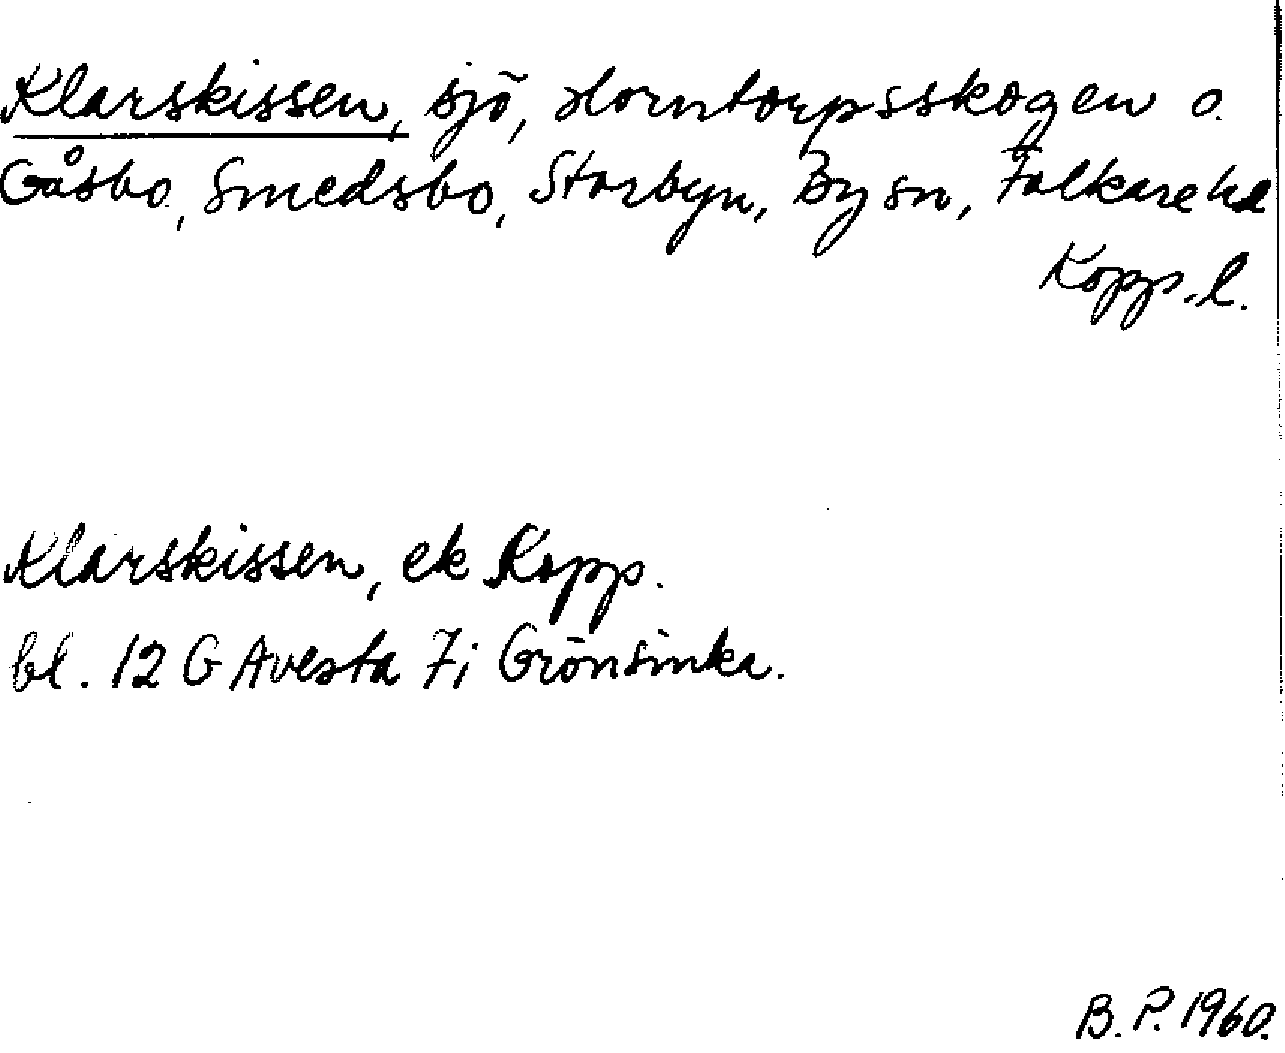 Klarskissen, sjö, Horntorpsskogen o.
Gåsbo, Smedsbo, Storbyn, By sn, Folkare hd
Kopp. l.
Klarskissen, ek Kopp.
bl. 12 G Avesta 7i Grönsinka.
B. P. 1960.